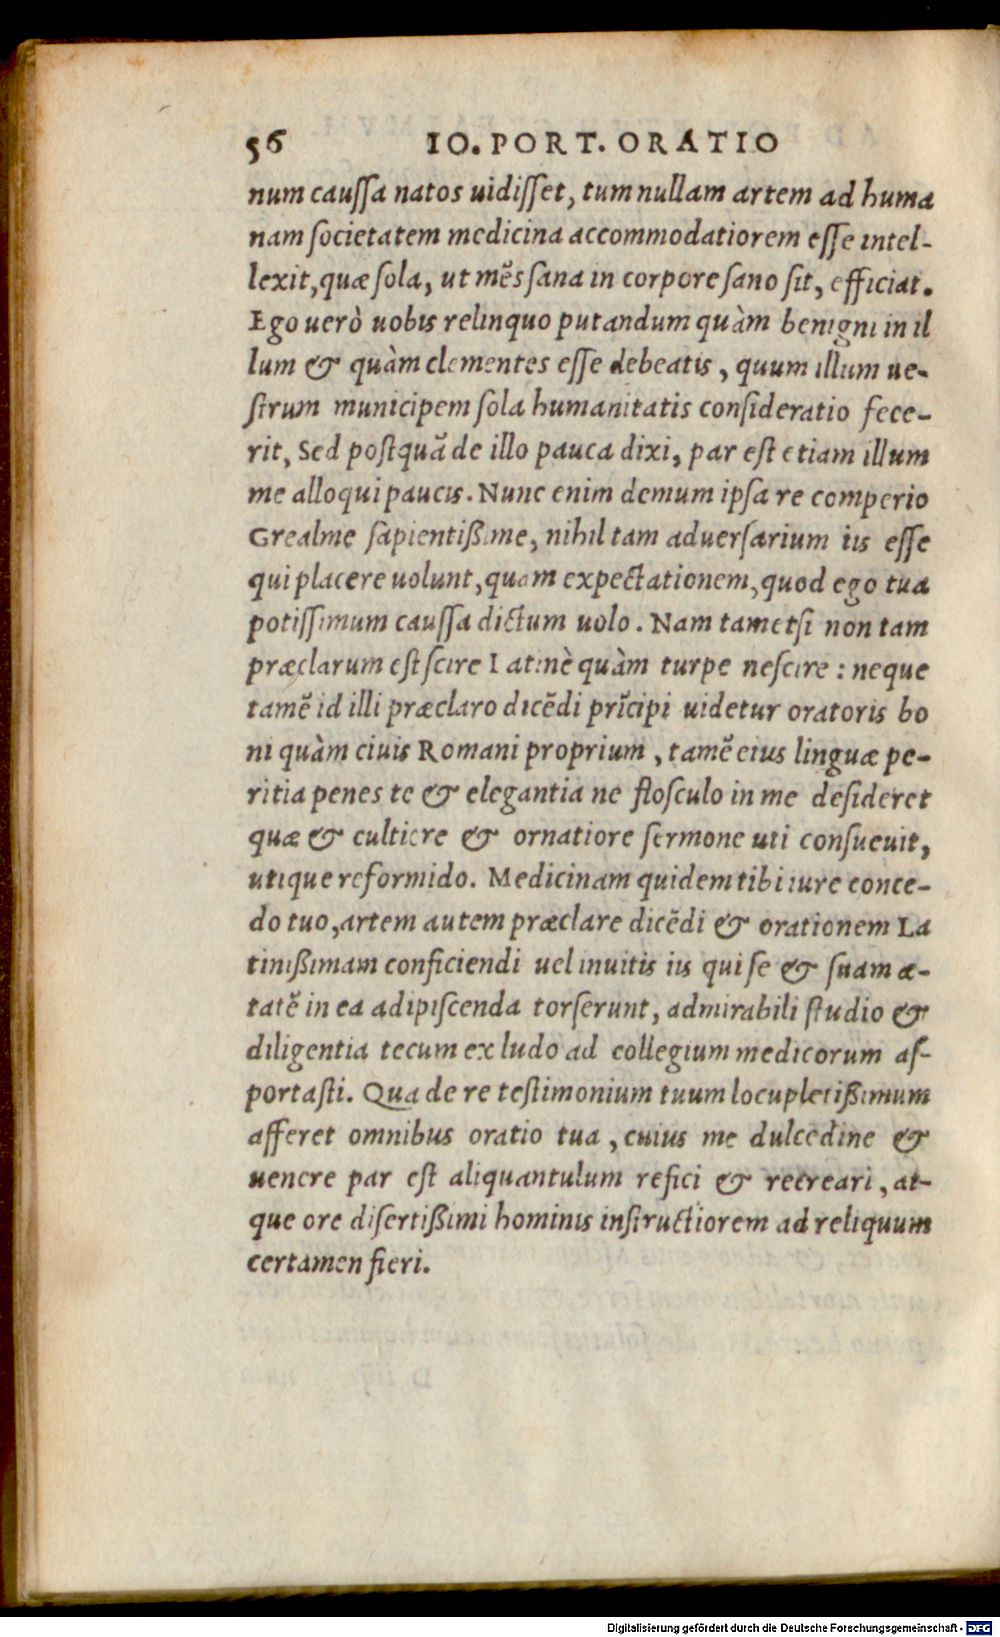 56 IO. PORT. ORATIO
num cauſſa natos uidiſſet, tum nullam artem ad huma
nam ſocietatem medicina accommodatiorem eſſe intel-
lexit, quæ ſola, ut mẽs ſana in corpore ſano ſit, efficiat.
Ego uerò uobis relinquo putandum quàm benigni in il
lum & quàm clementes eſſe debeatis, quum illum ue-
ſtrum municipem ſola humanitatis conſideratio fece-
rit, Sed poſtquã de illo pauca dixi, par eſt etiam illum
me alloqui paucis. Nunc enim demum ipſa re comperio
Grealme ſapientißime, nihil tam aduerſarium iis eſſe
qui placere uolunt, quam expectationem, quod ego tua
potiſſimum cauſſa dictum uolo. Nam tametſi non tam
præclarum eſt ſcire Latinè quàm turpe neſcire: neque
tamẽ id illi præclaro dicẽdi prĩcipi uidetur oratoris bo
ni quàm ciuis Romani proprium, tamẽ eius linguæ pe-
ritia penes te & elegantia ne floſculo in me deſideret
quæ & cultiore & ornatiore ſermone uti conſueuit,
utique reformido. Medicinam quidem tibi iure conce-
do tuo, artem autem præclare dicẽdi & orationem La
tinißimam conficiendi uel inuitis iis qui ſe & ſuam æ-
tatẽ in ea adipiſcenda torſerunt, admirabili ſtudio &
diligentia tecum ex ludo ad collegium medicorum aſ-
portaſti. Qua de re teſtimonium tuum locupletißimum
afferet omnibus oratio tua, cuius me dulcedine &
uenere par eſt aliquantulum refici & recreari, at-
que ore diſertißimi hominis inſtructiorem ad reliquum
certamen fieri.
Digitalisierung gefördert durch die Deutsche Forschungsgemeinschaft - DFG